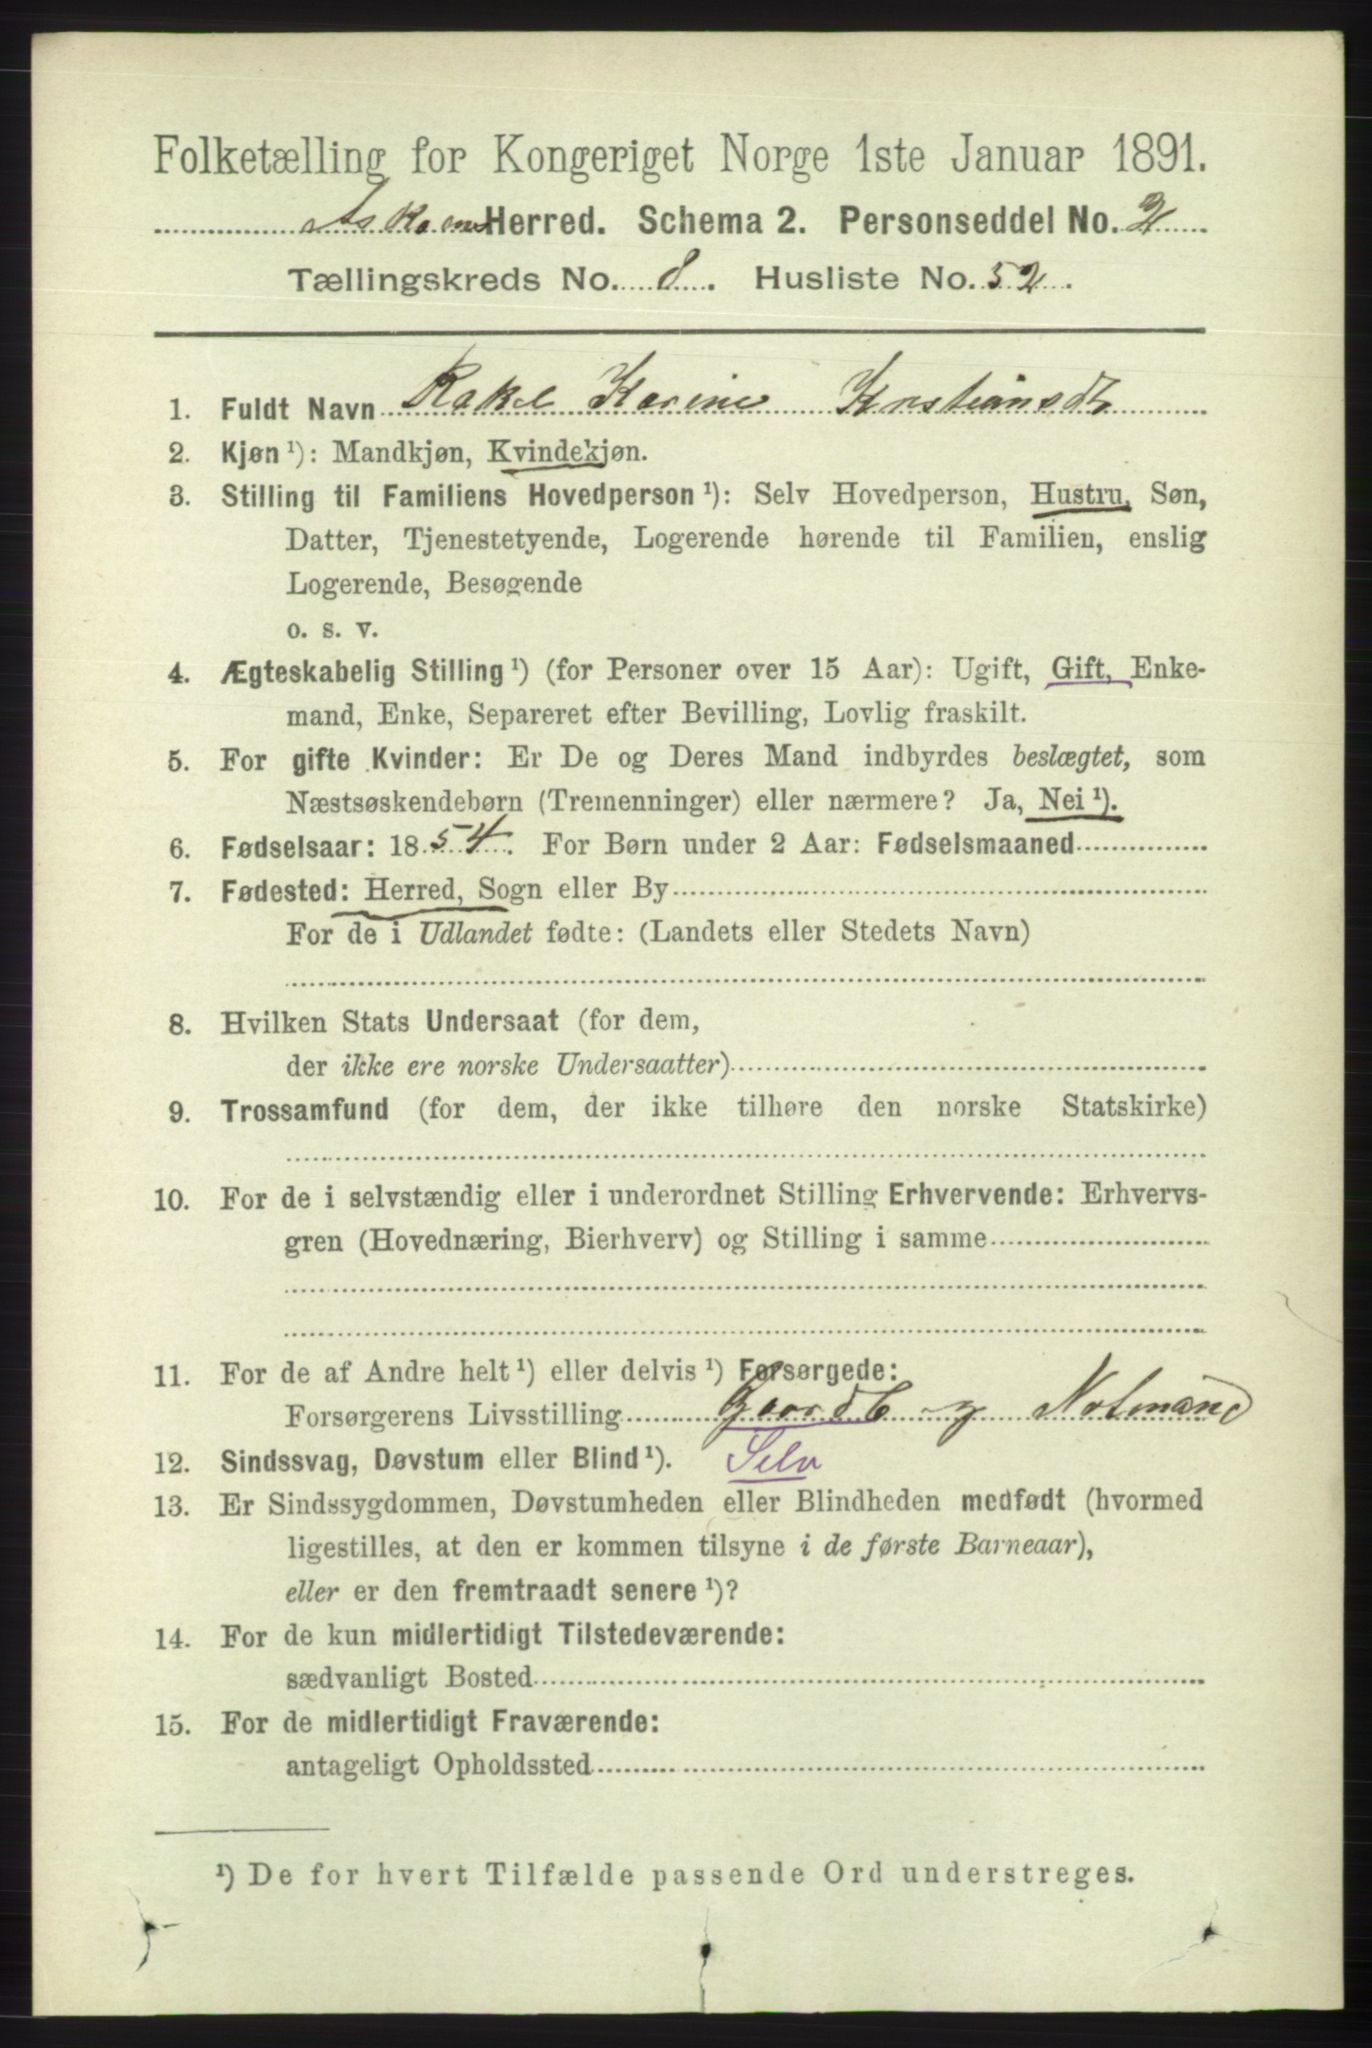 Folketælling for Kongeriget Norge 1ste Januar 1891.
Herred. Schema 2. Personseddel No. 2
Tællingskreds No. 8. Husliste No. 52.
1. Fuldt Navn Rakel Karine Kristiansdt
2. Kjøn ¹): Mandkjøn, Kvindekjøn.
3. Stilling til Familiens Hovedperson ¹): Selv Hovedperson, Hustru, Søn,
Datter, Tjenestetyende, Logerende hørende til Familien, enslig
Logerende, Besøgende
o. s. v.
4. Ægteskabelig Stilling ¹) (for Personer over 15 Aar): Ugift, Gift, Enke-
mand, Enke, Separeret efter Bevilling, Lovlig fraskilt.
5. For gifte Kvinder: Er De og Deres Mand indbyrdes beslægtet, som
Næstsøskendebørn (Tremenninger) eller nærmere? Ja, Nei ¹).
6. Fødselsaar: 1854. For Børn under 2 Aar: Fødselsmaaned
7. Fødested: Herred, Sogn eller By
For de i Udlandet fødte: (Landets eller Stedets Navn)
8. Hvilken Stats Undersaat (for dem,
der ikke ere norske Undersaatter)
9. Trossamfund (for dem, der ikke tilhøre den norske Statskirke)
10. For de i selvstændig eller i underordnet Stilling Erhvervende: Erhvervs-
gren (Hovednæring, Bierhverv) og Stilling i samme
11. For de af Andre helt ¹) eller delvis ¹) Forsørgede:
Forsørgerens Livsstilling Gaardb og Notmand
12. Sindssvag, Døvstum eller Blind ¹). Selv
13. Er Sindssygdommen, Døvstumheden eller Blindheden medfødt (hvormed
ligestilles, at den er kommen tilsyne i de første Barneaar),
eller er den fremtraadt senere ¹)?
14. For de kun midlertidigt Tilstedeværende:
sædvanligt Bosted
15. For de midlertidigt Fraværende:
antageligt Opholdssted
¹) De for hvert Tilfælde passende Ord understreges.